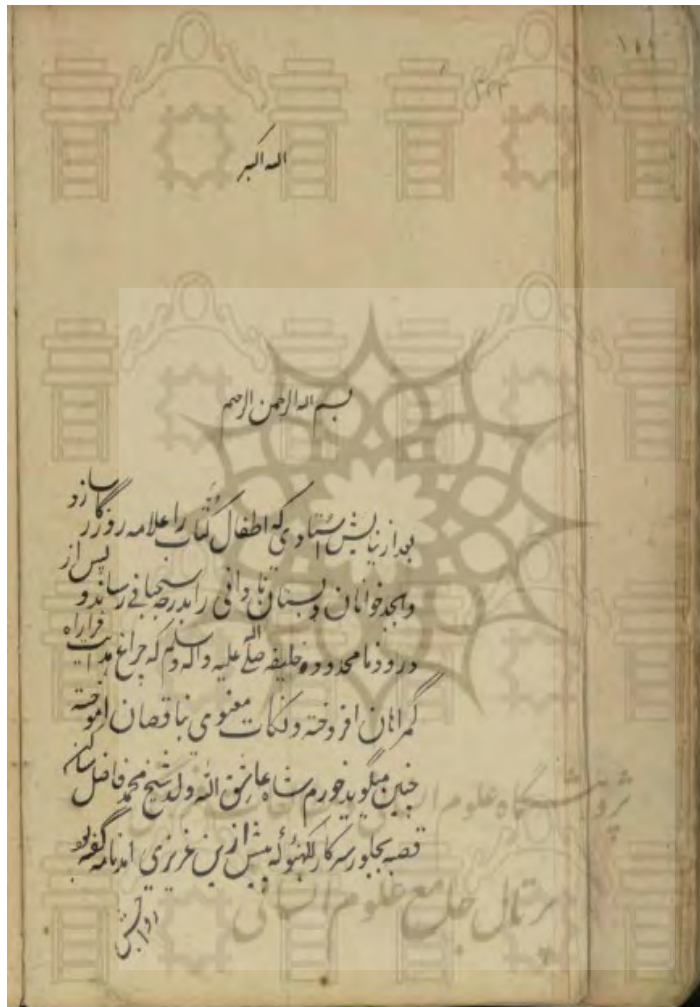 ۱۵۵
۳۴۴
الله اکبر
بسم الله الرحمن الرحیم
بعد از نیایش استادی که اطفال کتاب را علامه روزگار سازد
وابجد خوانان دبستان نادانی را بدرجه سحبانی رساند و پس از
درود نامحدود خلیفه صلی الله علیه واله وسلم که چراغ هدایت فرا راه
گمراهان افروخته و نکات معنوی بناقصان اموخته
چنین میگوید خورم شاه عاشق الله ولد شیخ محمد فاضل ساکن
قصبه بجلور سرکار لکهنؤ که پیش ازین عزیزی امدنامه گفته بود
رواجش
پژوهشگاه علوم انسانی و مطالعات فرهنگی
پرتال جامع علوم انسانی